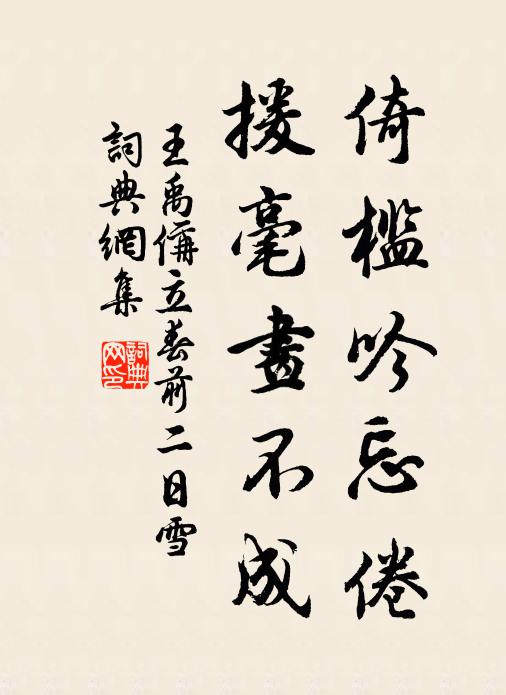 倚檻吟忘倦
援毫畫不成
王禹偁立春前二日雪
詞典網集
詞典网印